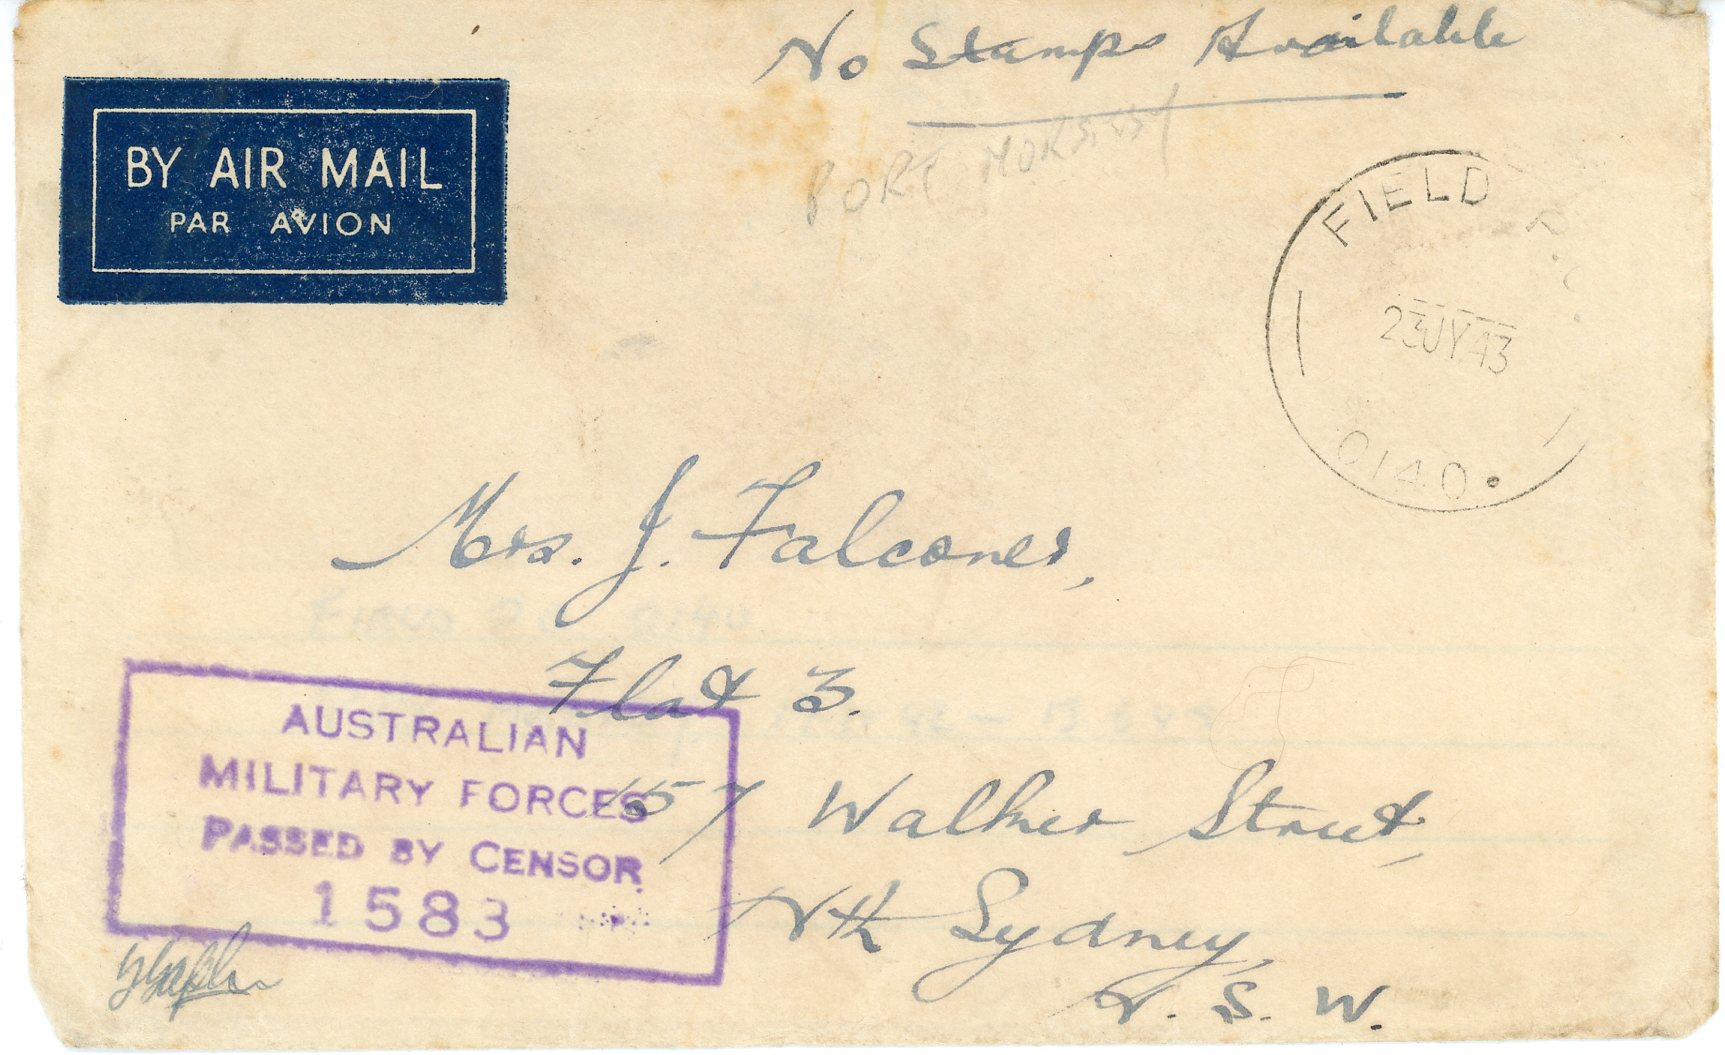 No Stamps Available
BY AIR MAIL
PAR AVION
PORT MORESBY
FIELD P.
23 JY 43
0140
Mrs. J. Falconer,
Flat 3.
157 Walker Street,
Nth Sydney,
N. S. W.
AUSTRALIAN
MILITARY FORCES
PASSED BY CENSOR
1583